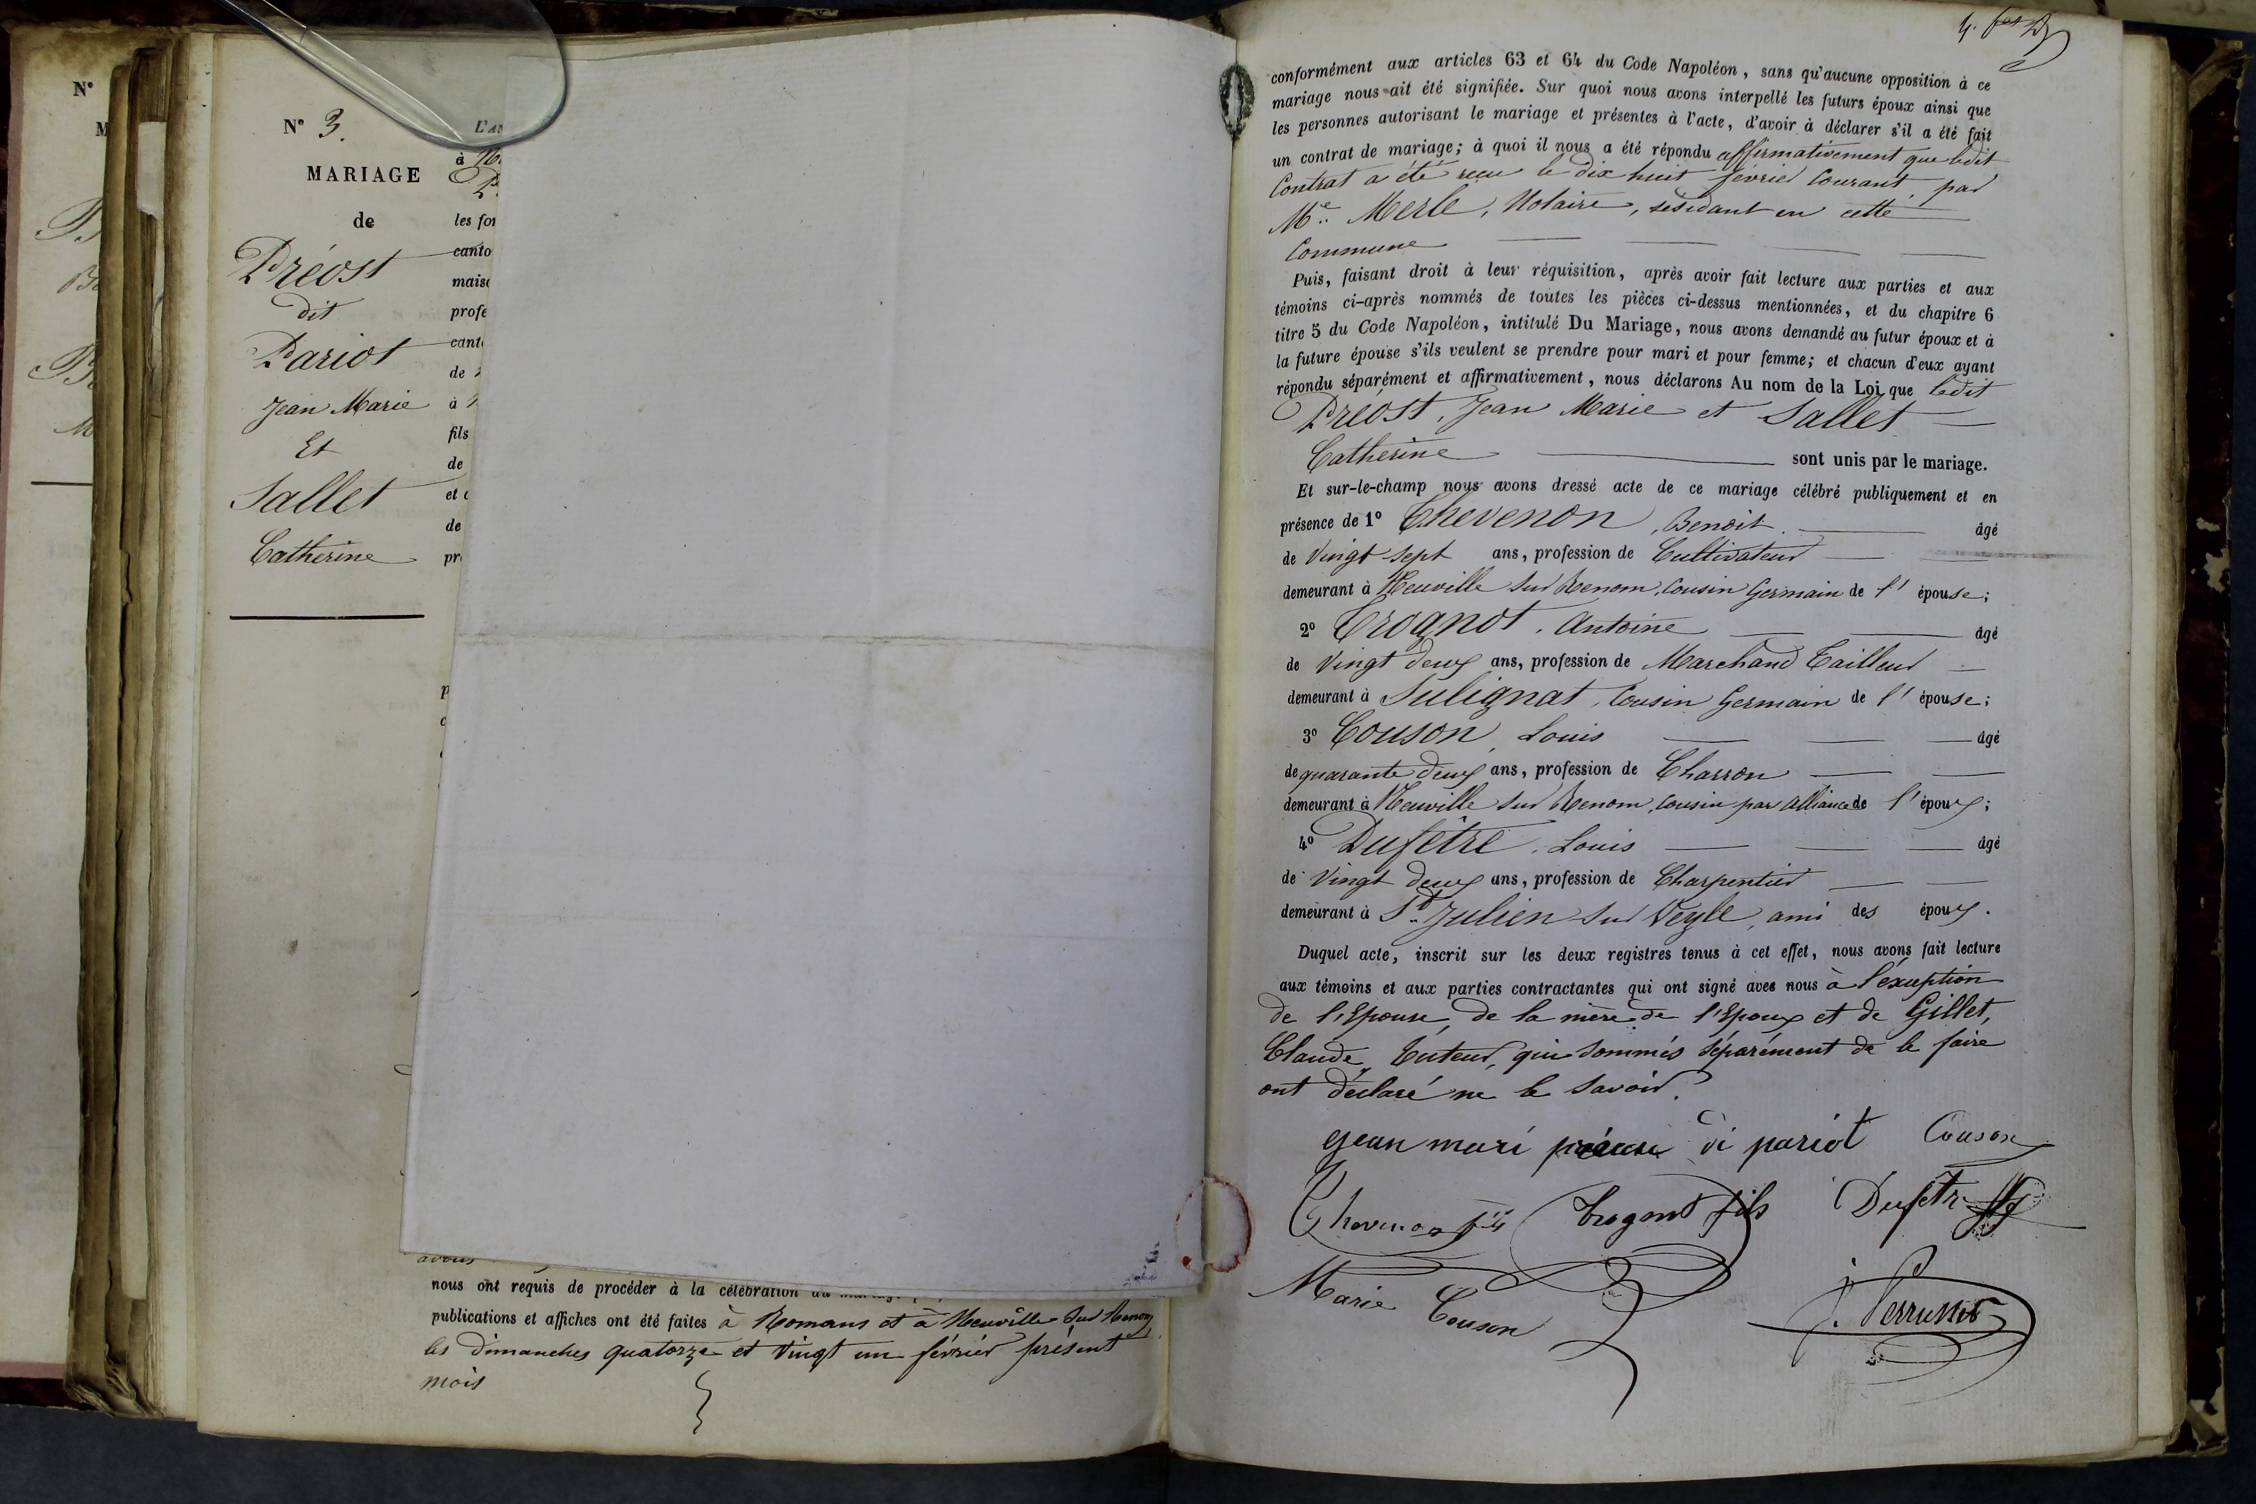 N°
M
N° 3.
MARIAGE
de
Préost
dit
Pariot
Jean Marie
Et
Sallet
Catherine
L'an
à
les for
canto
mais
profe
cant
de
à
fils
de
et
de
pr
avons
nous ont requis de procéder à la célébration du
publications et affiches ont été faites à Romans et à Neuville sur Renom
les dimanches quatorze et vingt un février présent
mois
conformément aux articles 63 et 64 du Code Napoléon, sans qu'aucune opposition à ce
mariage nous ait été signifiée. Sur quoi nous avons interpellé les futurs époux ainsi que
les personnes autorisant le mariage et présentes à l'acte, d'avoir à déclarer s'il a été fait
un contrat de mariage; à quoi il nous a été répondu affirmativement que ledit
Contrat a été reçu le dix huit février Courant par
Me. Merle, Notaire, résidant en cette
Commune
Puis, faisant droit à leur réquisition, après avoir fait lecture aux parties et aux
témoins ci-après nommés de toutes les pièces ci-dessus mentionnées, et du chapitre 6
titre 5 du Code Napoléon, intitulé Du Mariage, nous avons demandé au futur époux et à
la future épouse s'ils veulent se prendre pour mari et pour femme; et chacun d'eux ayant
répondu séparément et affirmativement, nous déclarons Au nom de la Loi que ledit
Préost, Jean Marie et Sallet
Catherine sont unis par le mariage.
Et sur-le-champ nous avons dressé acte de ce mariage célébré publiquement et en
présence de 1° Chevenon, Benoit âgé
de Vingt sept ans, profession de Cultivateur
demeurant à Neuville sur Renom, Cousin Germain de l' épouse;
2° Trognot, Antoine âgé
de Vingt deux ans, profession de Marchand Tailleur
demeurant à Sulignat, Cousin Germain de l' épouse;
3° Couson, Louis âgé
de quarante deux ans, profession de Charron
demeurant à Neuville sur Renom, cousin par alliance de l' époux;
4° Dufêtre, Louis âgé
de Vingt deux ans, profession de Charpentier
demeurant à St. Julien sur Veyle, ami des époux.
Duquel acte, inscrit sur les deux registres tenus à cet effet, nous avons fait lecture
aux témoins et aux parties contractantes qui ont signé avec nous à l'exception
de l'Epouse, de la mère de l'Epoux et de Gillet,
Claude, Tuteur, qui sommés séparément de le faire
ont déclaré ne le savoir.
jean mari di pariot Couson
Chevenon fils Trognot fils Dufetre
Marie Couson